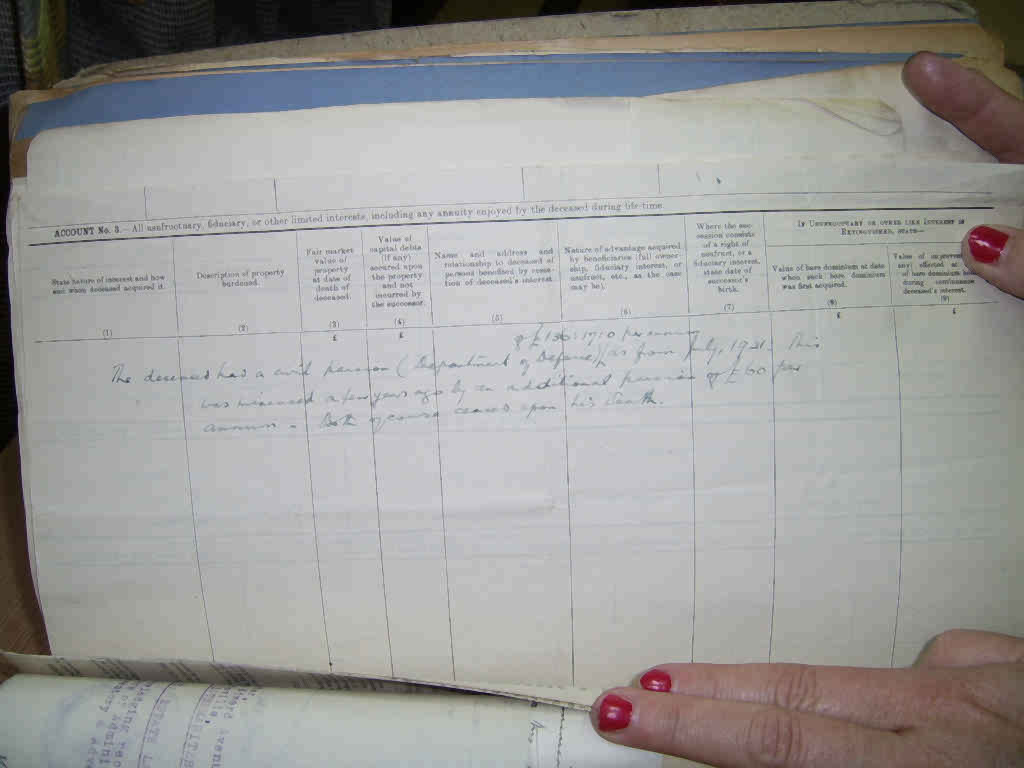 ACCOUNT No. 3.—All usufructuary, fiduciary, or other limited interests, including any annuity enjoyed by the deceased during life-time.
State nature of interest and how
and whom deceased acquired it.
(1)
Description of property
burdened.
(2)
Fair market
value of
property
at date of
death of
deceased.
(3)
£
Value of
capital debts
(if any)
secured upon
the property
and not
incurred by
the successor.
(4)
£
Name and address and
relationship to deceased of
persons benefited by cessa-
tion of deceased's interest.
(5)
Nature of advantage acquired
by beneficiaries (full owner-
ship, fiduciary interest, or
usufruct, etc., as the case
may be).
(6)
Where the suc-
cession consists
of a right of
usufruct, or a
fiduciary interest,
state date of
successor's
birth.
(7)
If Usufructuary or other like Interest is
Extinguished, state—
Value of bare dominium at date
when such bare dominium
was first acquired.
(8)
£
Value of improvements
any) effected
of bare dominium
during continuance
deceased's interest.
(9)
£
of £136:17:0 per annum
The deceased has a civil pension (Department of Defence) as from July, 1921. This
was increased a few years ago by an additional pension of £60 per
annum. Both of course ceased upon his death.